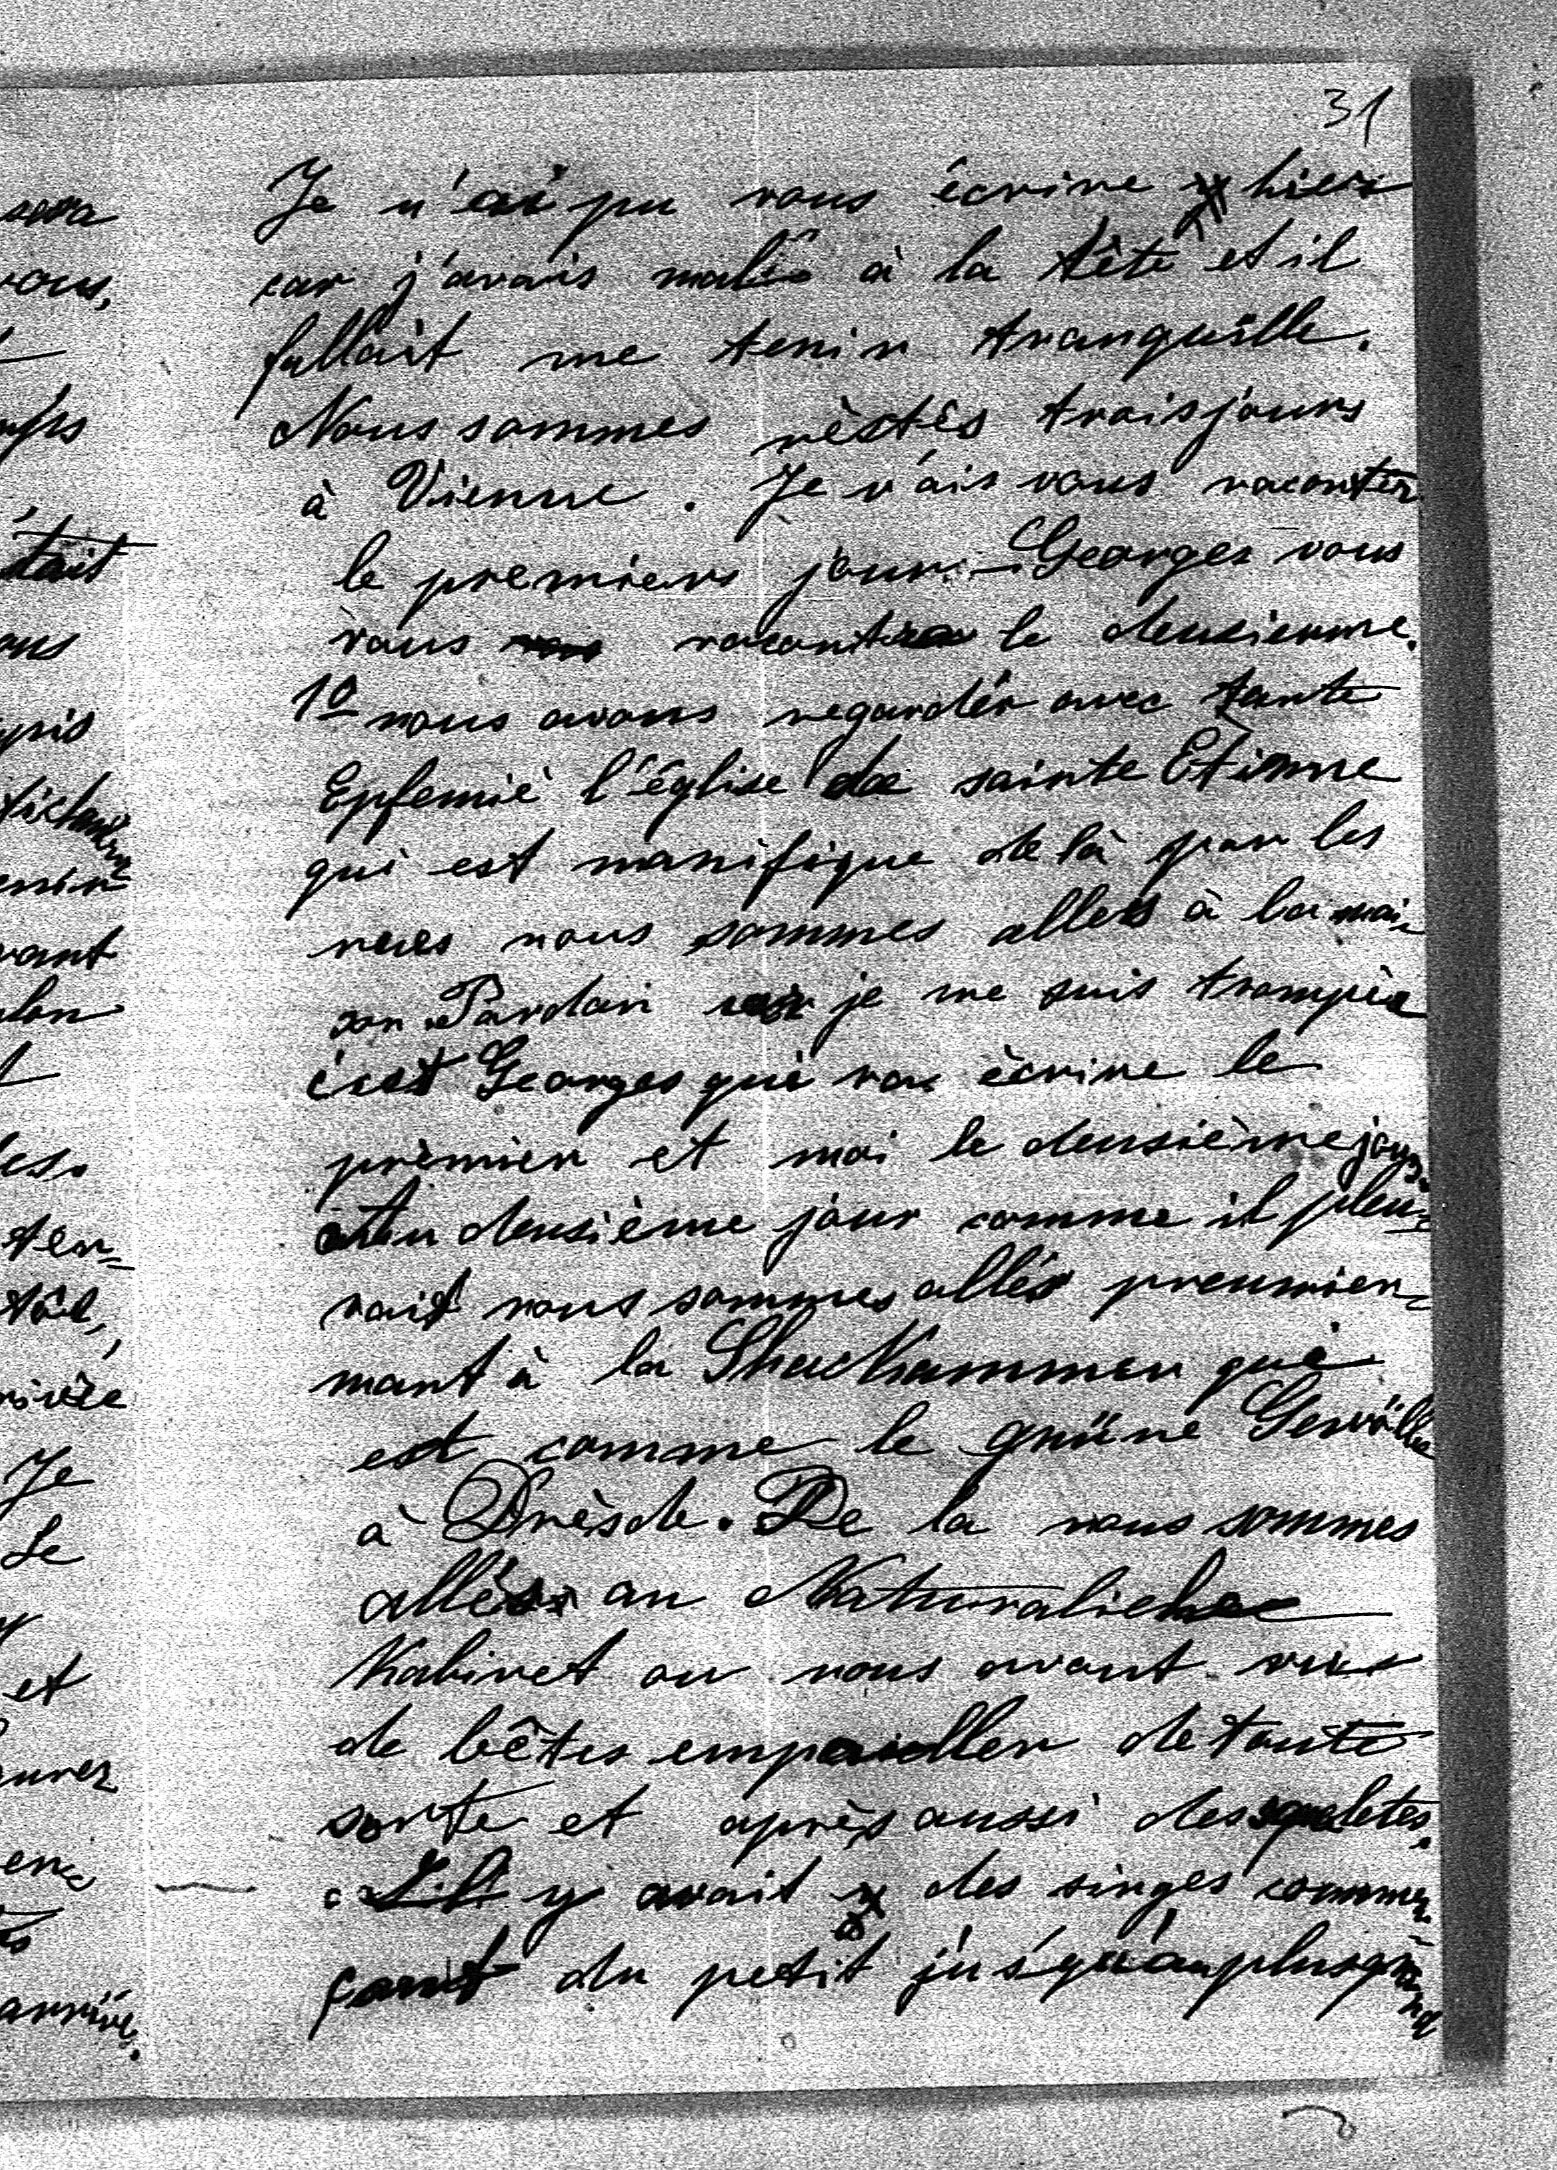 31
Je n'ai pu vous écrire hier
car j'avais mal à la tête et il
fallait me tenir tranquille.
Nous sommes rèstés trois jours
à Vienne. Je v'ais vous raconter
le premiers jour. — Georges vous
vous racontera le deusieume.
1º nous avons regardér avec tante
Epfemiè l'église de sainte Etienne
qui est manifique de là par les
rues nous sommes allers à la mai-
son Pardon je me suis trompèe
c'est Georges qui va écrire le
prèmier et moi le deusième jour.
Au deusième jour comme il pleu-
vait nous sommes allés preumier-
mant à la Shackammer qui
est comme le grüne Gewölbe
à Drèsde. De la nous sommes
allés au Naturaliehe
Kabinet ou nous avont vus
de bêtes empailler de toute
sorte et après aussi des squeletes.
Il y avait des singes commen-
çant du petit jus'qu'au plus grand